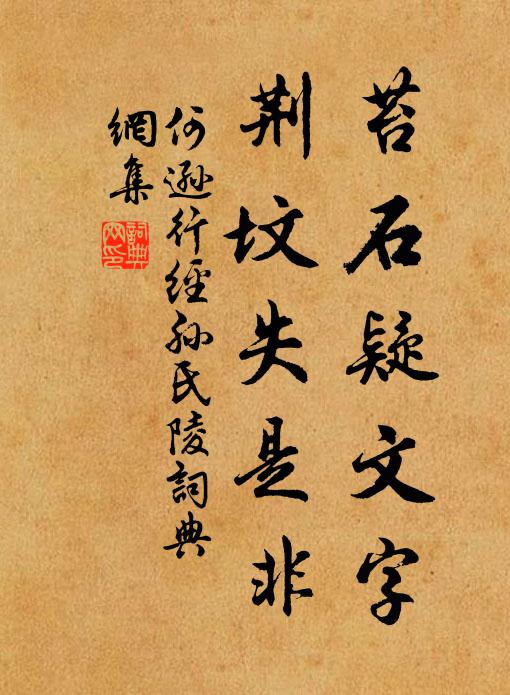 苔石疑文字
荆坟失是非
何遜行經孙氏陵詞典
網集
詞典
网印